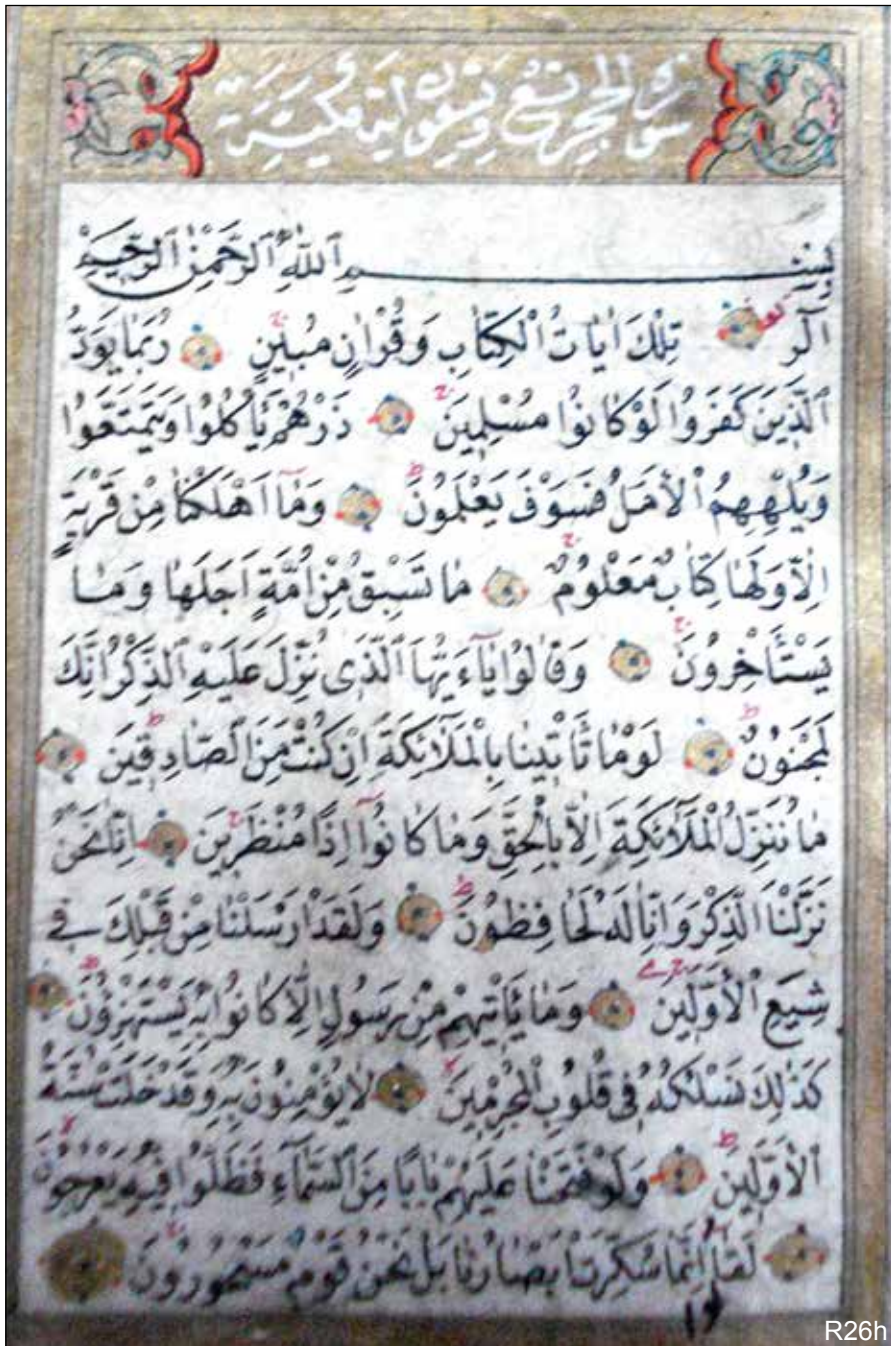 سورة الحجر تسع وتسعون اية مكية
بسم الله الرحمن الرحيم
الٓر تِلْكَ اٰيَاتُ الْكِتَابِ وَقُرْاٰنٍ مُبِينٍ رُبَمَا يَوَدُّ
الَّذِينَ كَفَرُوا لَوْ كَانُوا مُسْلِمِينَ ذَرْهُمْ يَأْكُلُوا وَيَتَمَتَّعُوا
وَيُلْهِهِمُ الْاَمَلُ فَسَوْفَ يَعْلَمُونَ وَمَٓا اَهْلَكْنَا مِنْ قَرْيَةٍ
اِلَّا وَلَهَا كِتَابٌ مَعْلُومٌ مَا تَسْبِقُ مِنْ اُمَّةٍ اَجَلَهَا وَمَا
يَسْتَأْخِرُونَ وَقَالُوا يَٓا ءَيُّهَا الَّذِى نُزِّلَ عَلَيْهِ الذِّكْرُ اِنَّكَ
لَمَجْنُونٌ لَوْ مَا تَأْتِينَا بِالْمَلَٓائِكَةِ اِنْ كُنْتَ مِنَ الصَّادِقِينَ
مَا نُنَزِّلُ الْمَلَٓائِكَةَ اِلَّا بِالْحَقِّ وَمَا كَانُٓوا اِذًا مُنْظَرِينَ اِنَّا نَحْنُ
نَزَّلْنَا الذِّكْرَ وَاِنَّا لَهُ لَحَافِظُونَ وَلَقَدْ اَرْسَلْنَا مِنْ قَبْلِكَ فِى
شِيَعِ الْاَوَّلِينَ وَمَا يَأْتِيهِمْ مِنْ رَسُولٍ اِلَّا كَانُوا بِهِ يَسْتَهْزِؤُنَ
كَذٰلِكَ نَسْلُكُهُ فِى قُلُوبِ الْمُجْرِمِينَ لَا يُؤْمِنُونَ بِهِ وَقَدْ خَلَتْ سُنَّةُ
الْاَوَّلِينَ وَلَوْ فَتَحْنَا عَلَيْهِمْ بَابًا مِنَ السَّمَٓاءِ فَظَلُّوا فِيهِ يَعْرُجُونَ
لَقَالُٓوا اِنَّمَا سُكِّرَتْ اَبْصَارُنَا بَلْ نَحْنُ قَوْمٌ مَسْحُورُونَ
R26h